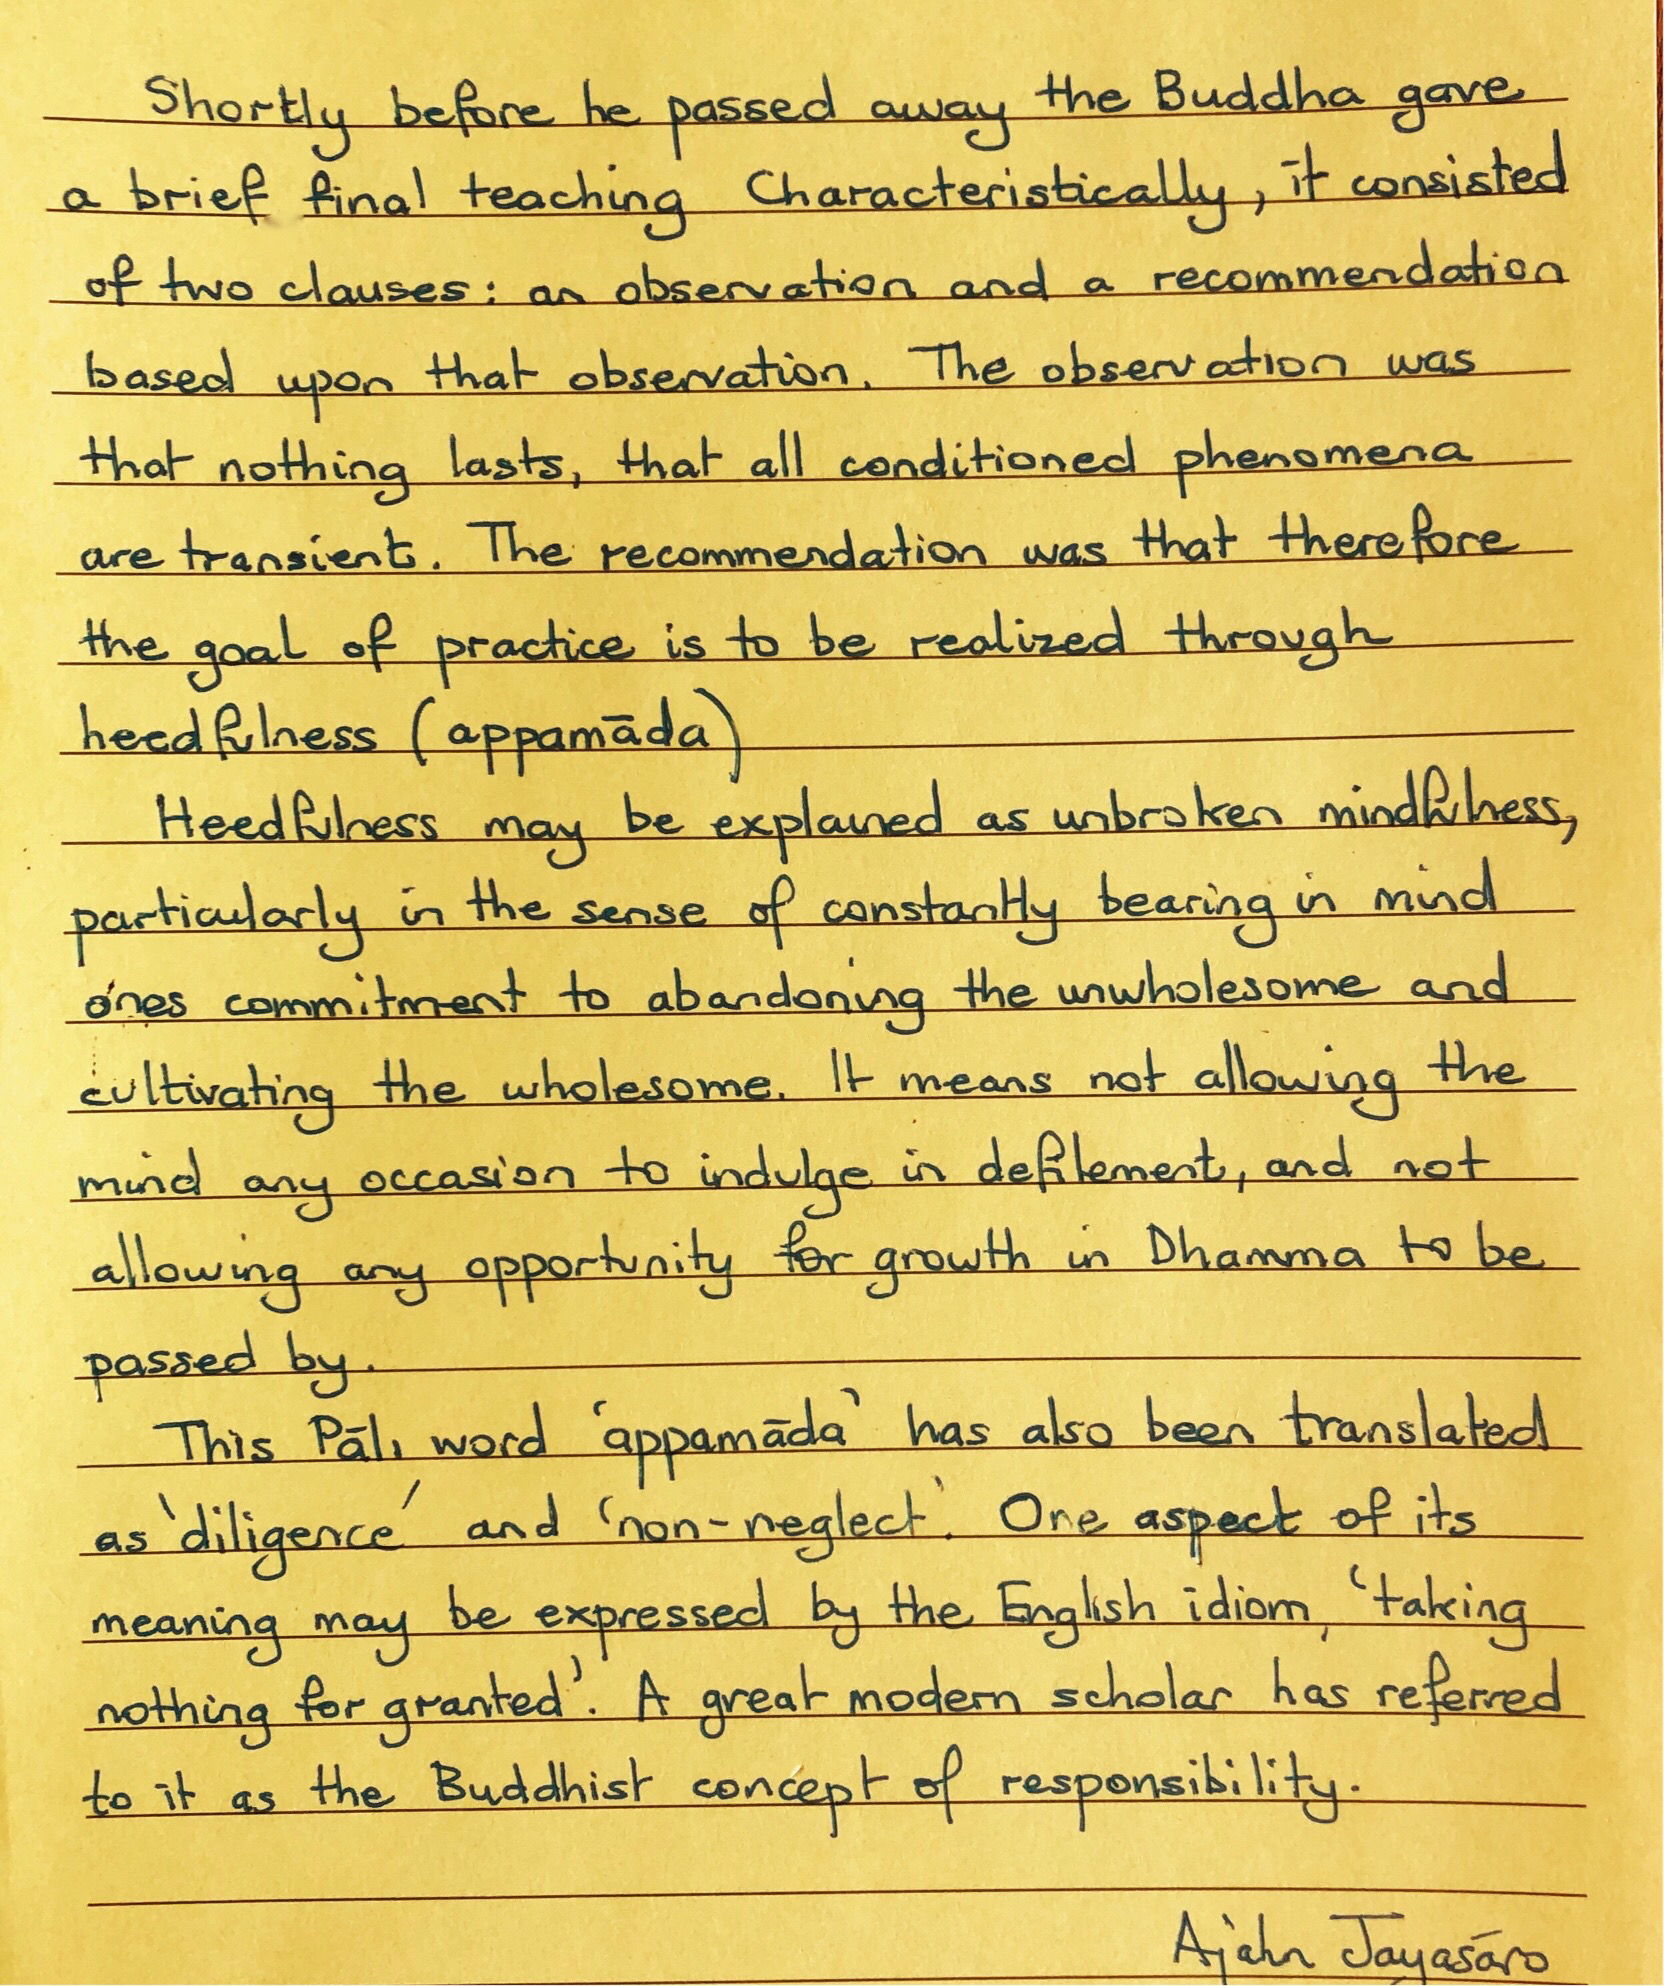 Shortly before he passed away the Buddha gave
a brief final teaching Characteristically, it consisted
of two clauses: an observation and a recommendation
based upon that observation. The observation was
that nothing lasts, that all conditioned phenomena
are transient. The recommendation was that therefore
the goal of practice is to be realized through
heedfulness (appamāda)
Heedfulness may be explained as unbroken mindfulness,
particularly in the sense of constantly bearing in mind
one's commitment to abandoning the unwholesome and
cultivating the wholesome. It means not allowing the
mind any occasion to indulge in defilement, and not
allowing any opportunity for growth in Dhamma to be
passed by.
This Pāli word 'appamāda' has also been translated
as 'diligence' and 'non-neglect'. One aspect of its
meaning may be expressed by the English idiom, 'taking
nothing for granted'. A great modern scholar has referred
to it as the Buddhist concept of responsibility.
Ajahn Jayasāro